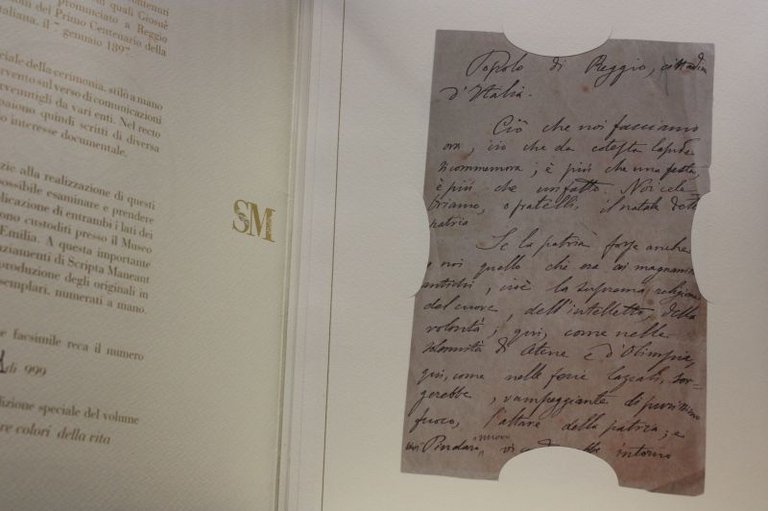 contenuti
di quali Giosuè
pronunciato a Reggio
ioni del Primo Centenario della
italiana, il 7 gennaio 1897.
ciale della cerimonia, stilò a mano
ervento sul verso di comunicazioni
rvenutigli da vari enti. Nel recto
paiono quindi scritti di diversa
o interesse documentale.
zie alla realizzazione di questi
possibile esaminare e prendere
plicazione di entrambi i lati dei
ono custoditi presso il Museo
Emilia. A questa importante
nziamenti di Scripta Maneant
produzione degli originali in
semplari, numerati a mano.
e facsimile reca il numero
di 999
dizione speciale del volume
re colori della vita
SM
Popolo di Reggio, cittadin
d'Italia.
Ciò che noi facciamo
ora, ciò che da cotesta lapide
si commemora, è più che una festa
è più che un fatto. Noi cele
briamo, o fratelli, il natale dell
patria
Se la patria fosse anche
a noi quello che era ai magnanimi
antichi, cioè la suprema religione
del cuore, dell'intelletto, della
volontà, qui, come nelle
solennità di Atene e d'Olimpia,
qui, come nelle ferie laziali, sor-
gerebbe, vampeggiante di purissimo
fuoco, l'altare della patria; e
nuovi
intorno